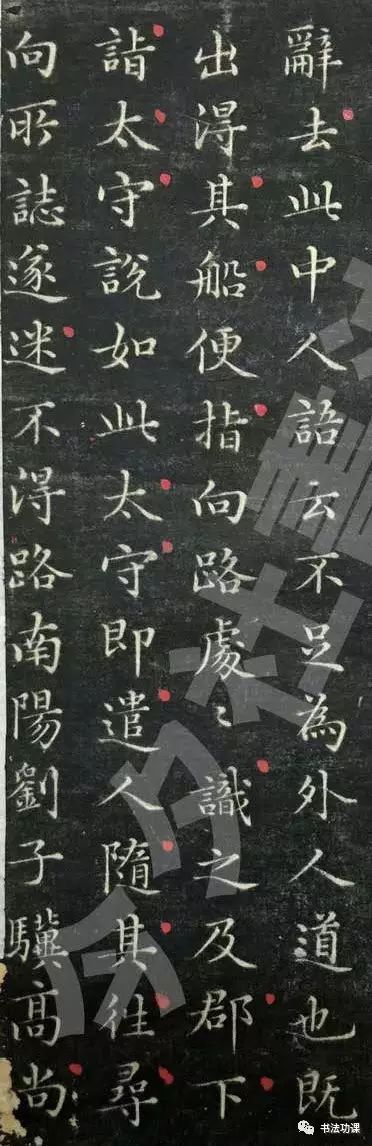 辭去此中人語云不足為外人道也既
出得其船便指向路處〻識之及郡下
詣太守說如此太守即遣人隨其往尋
向所誌遂迷不得路南陽劉子驥高尚
书法功课